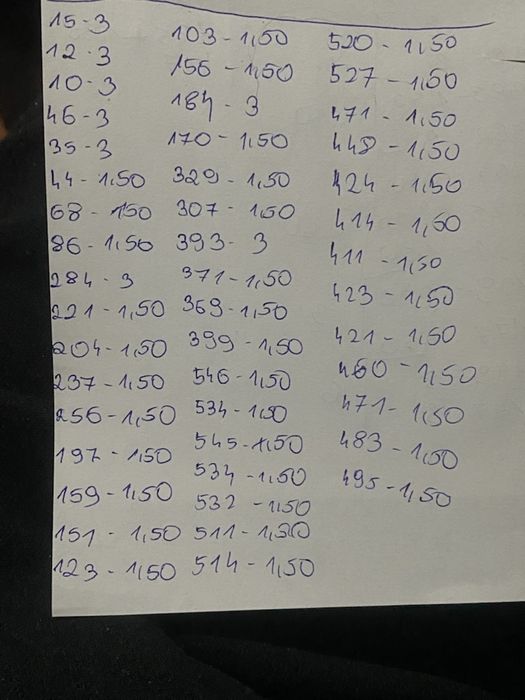 15-3
12-3
10-3
46-3
35-3
44-1,50
68-1,50
86-1,50
284-3
221-1,50
204-1,50
237-1,50
256-1,50
197-1,50
159-1,50
151-1,50
123-1,50
103-1,50
156-1,50
184-3
170-1,50
329-1,50
307-1,50
393-3
371-1,50
369-1,50
399-1,50
546-1,50
534-1,50
545-1,50
534-1,50
532-1,50
511-1,50
514-1,50
520-1,50
527-1,50
471-1,50
448-1,50
424-1,50
414-1,50
411-1,50
423-1,50
421-1,50
460-1,50
471-1,50
483-1,50
495-1,50